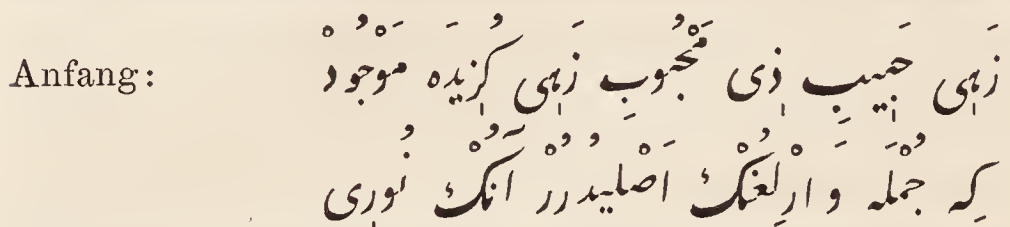 Anfang: زَهِى حَبِيبِ ذِى مَحْبُوبِ زَهِى كُزِيدَه مَوْجُودْ
كِه جُمْلَه وَارْلِغُنْكْ اَصْلِيدُرُرْ آنُكْ نُورِى